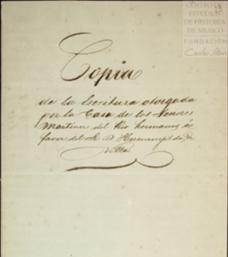 CENTRO
ESTUDIOS
DE HISTORIA
DE MEXICO
FUNDACIÓN
Carlos Slim
Copia
de la Escritura otorgada
por la Casa de los Señores
Martinez del Rio hermanos á
favor del S. D. Hermenegildo de